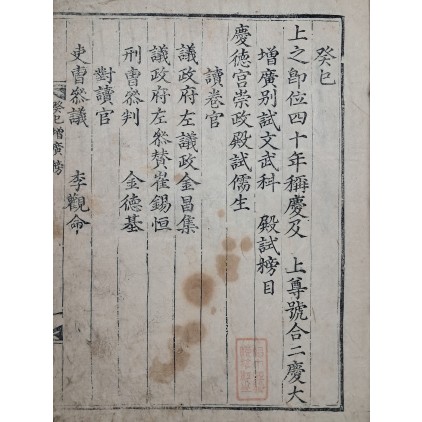 癸巳
上之卽位四十年稱慶及 上尊號合二慶大
增廣別試文武科 殿試榜目
慶德宮崇政殿試儒生
讀卷官
議政府左議政金昌集
議政府左叅贊崔錫恒
刑曹叅判 金德基
對讀官
吏曹叅議 李觀命
癸巳增廣榜